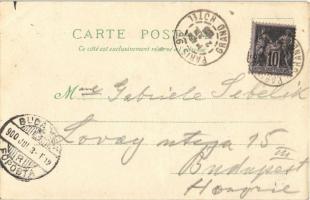 CARTE POSTALE
Ce côté est exclusivement réservé
PARIS
GRAND HOTEL
10
Mme Gabriele Sebelik
Lovag utcza 15
III
Budapest
Hongrie
BUDAPEST
900 VIII
FŐPOSTA